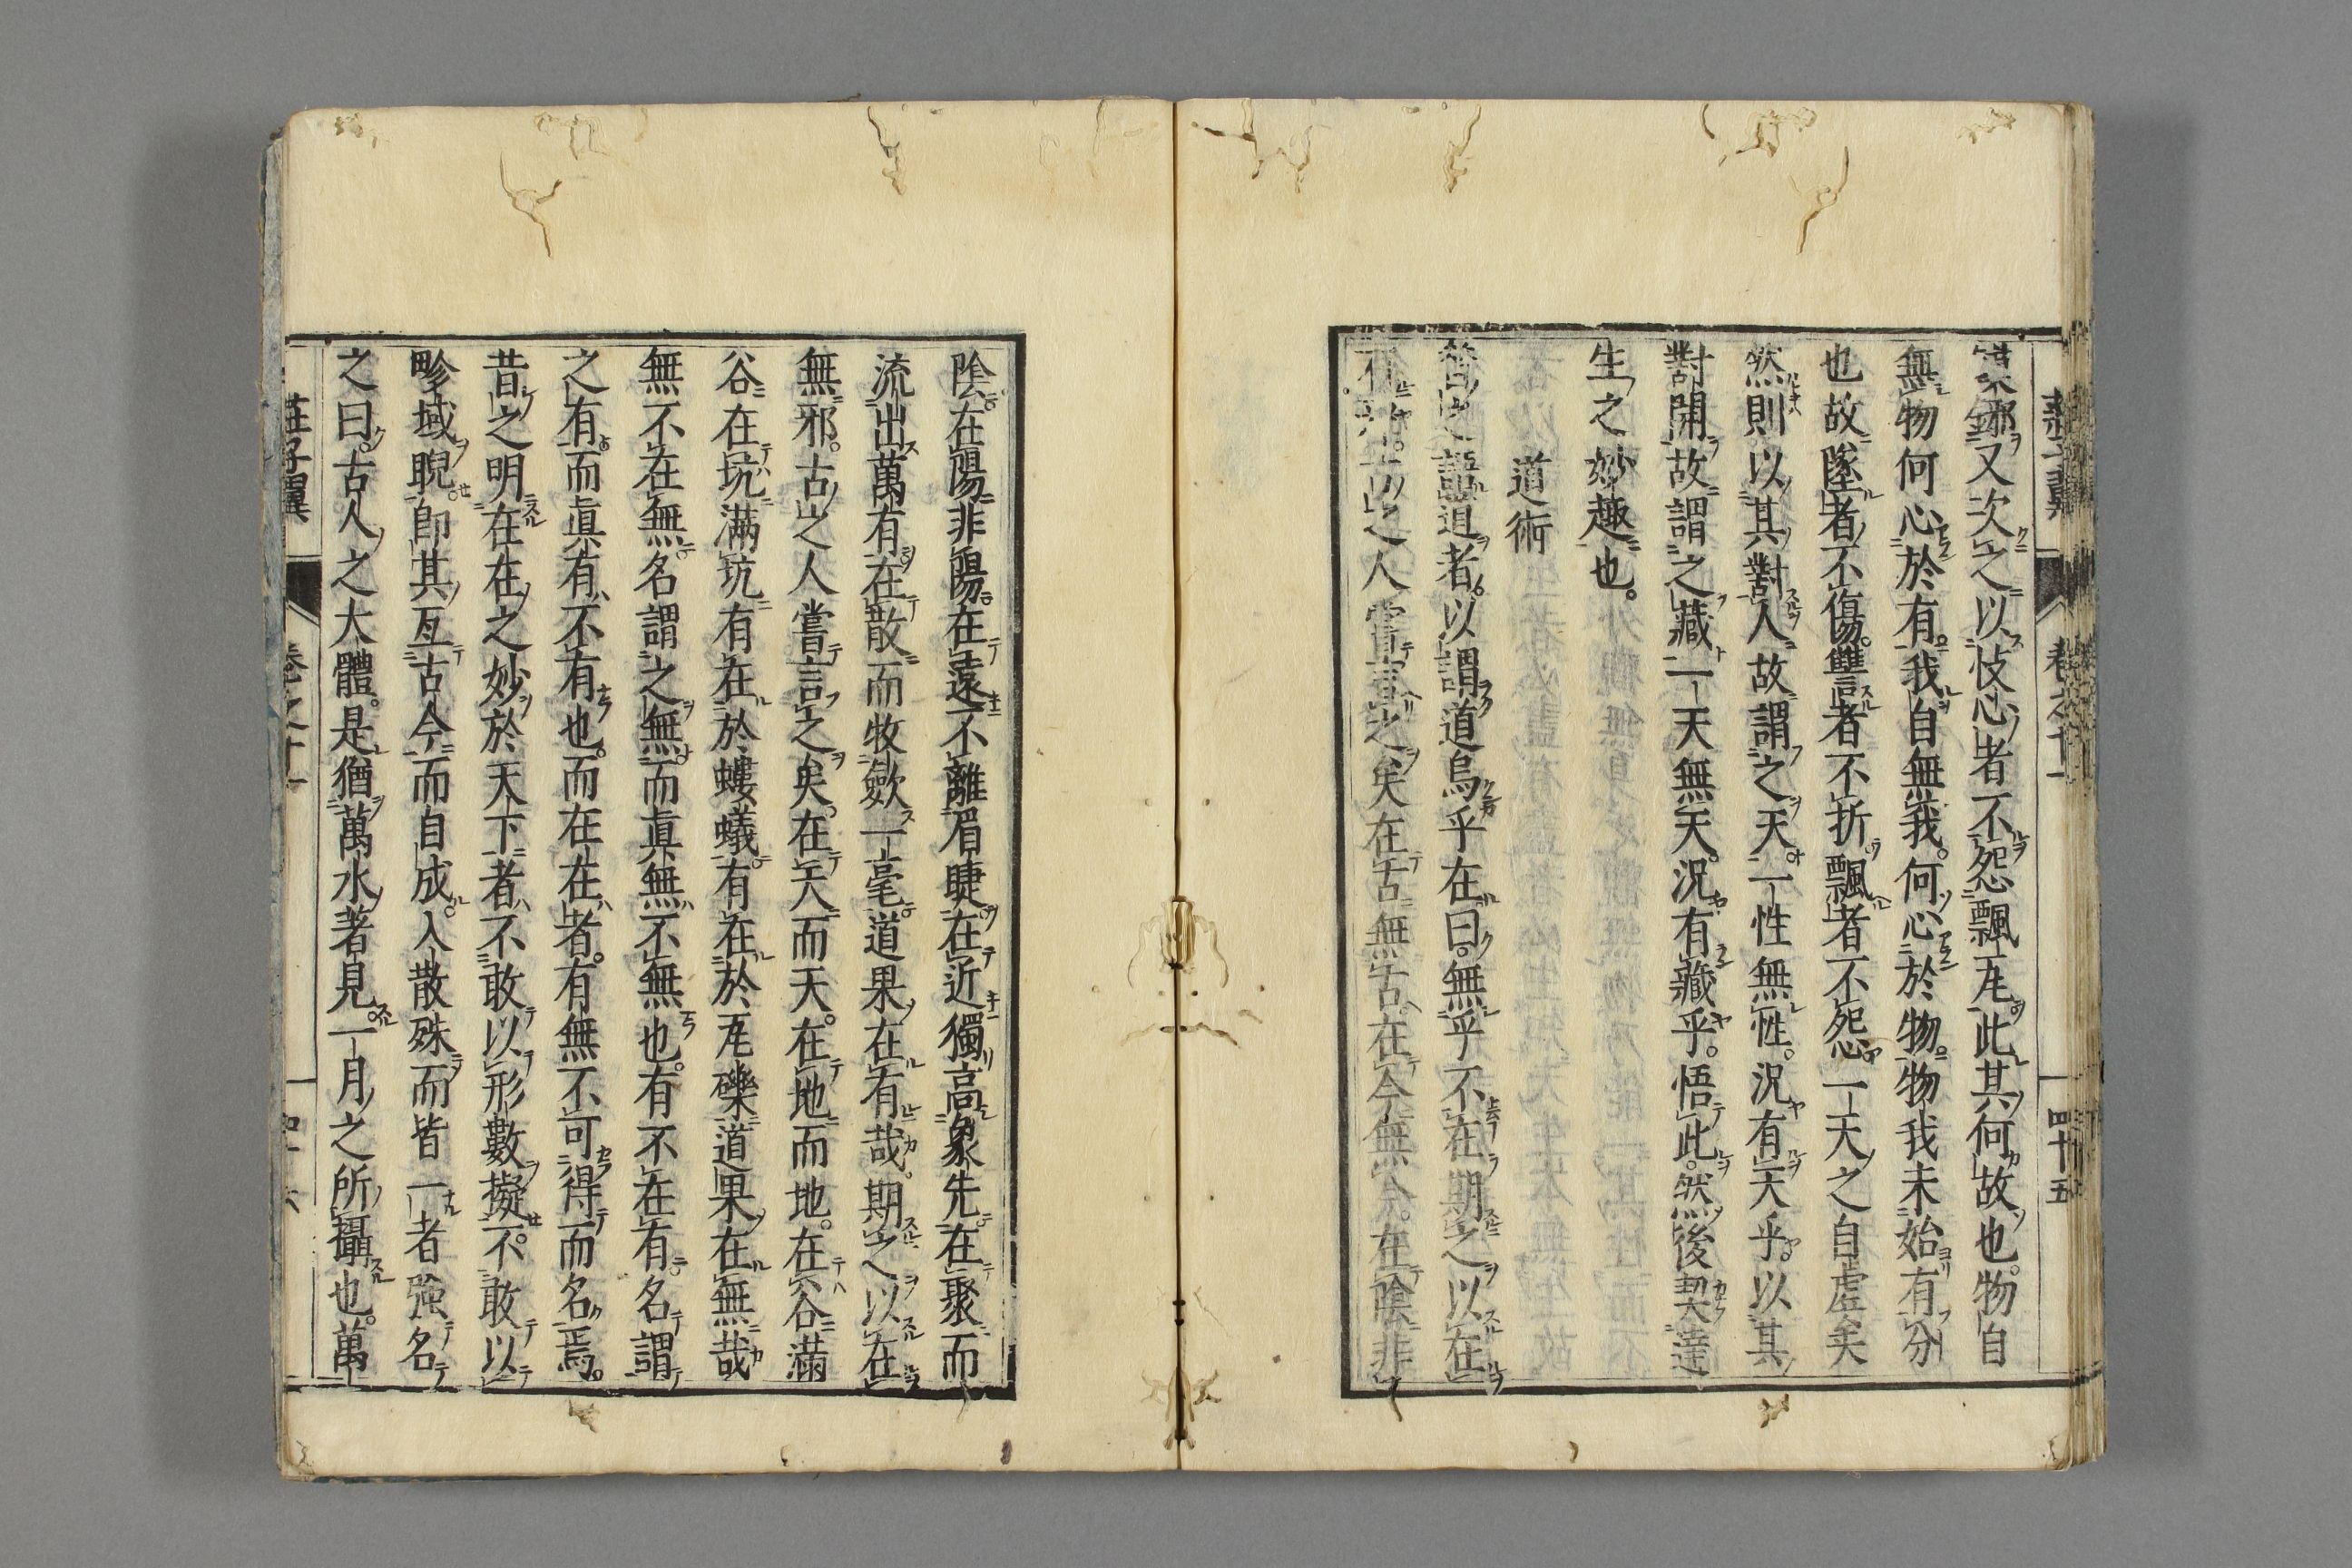 鏌鎁又次之以忮心者不怨飄瓦此其何故也物自
無物何心於有我自無我何心於物物我未始有分
也故墜者不傷讐者不折飄者不怨一天之自虛矣
然則以其對人故謂之天一性無性況有天乎以其
對開故謂之藏一天無天況有藏乎悟此然後契達
生之妙趣也
道術
昔之語道者以謂道烏乎在曰無乎不在期之以在
有邪古之人嘗言之矣在古無古在今無今在陰非
莊子翼
卷之十一
四十五
陰在陽非陽在遠不離眉睫在近獨高象先在聚而
流出萬有在散而收歛一毫道果在有哉期之以在
無邪古之人嘗言之矣在天而天在地而地在谷滿
谷在坑滿坑有在於螻蟻有在於瓦礫道果在無哉
無不在無名謂之無而眞無不無也有不在有名謂
之有而眞有不有也而在在者有無不可得而名焉
昔之明在在之妙於天下者不敢以形數擬不敢以
畛域睨卽其亙古今而自成入散殊而皆一者強名
之曰古人之大體是猶萬水著見一月之所攝也萬
莊子翼
卷之十一
四十六